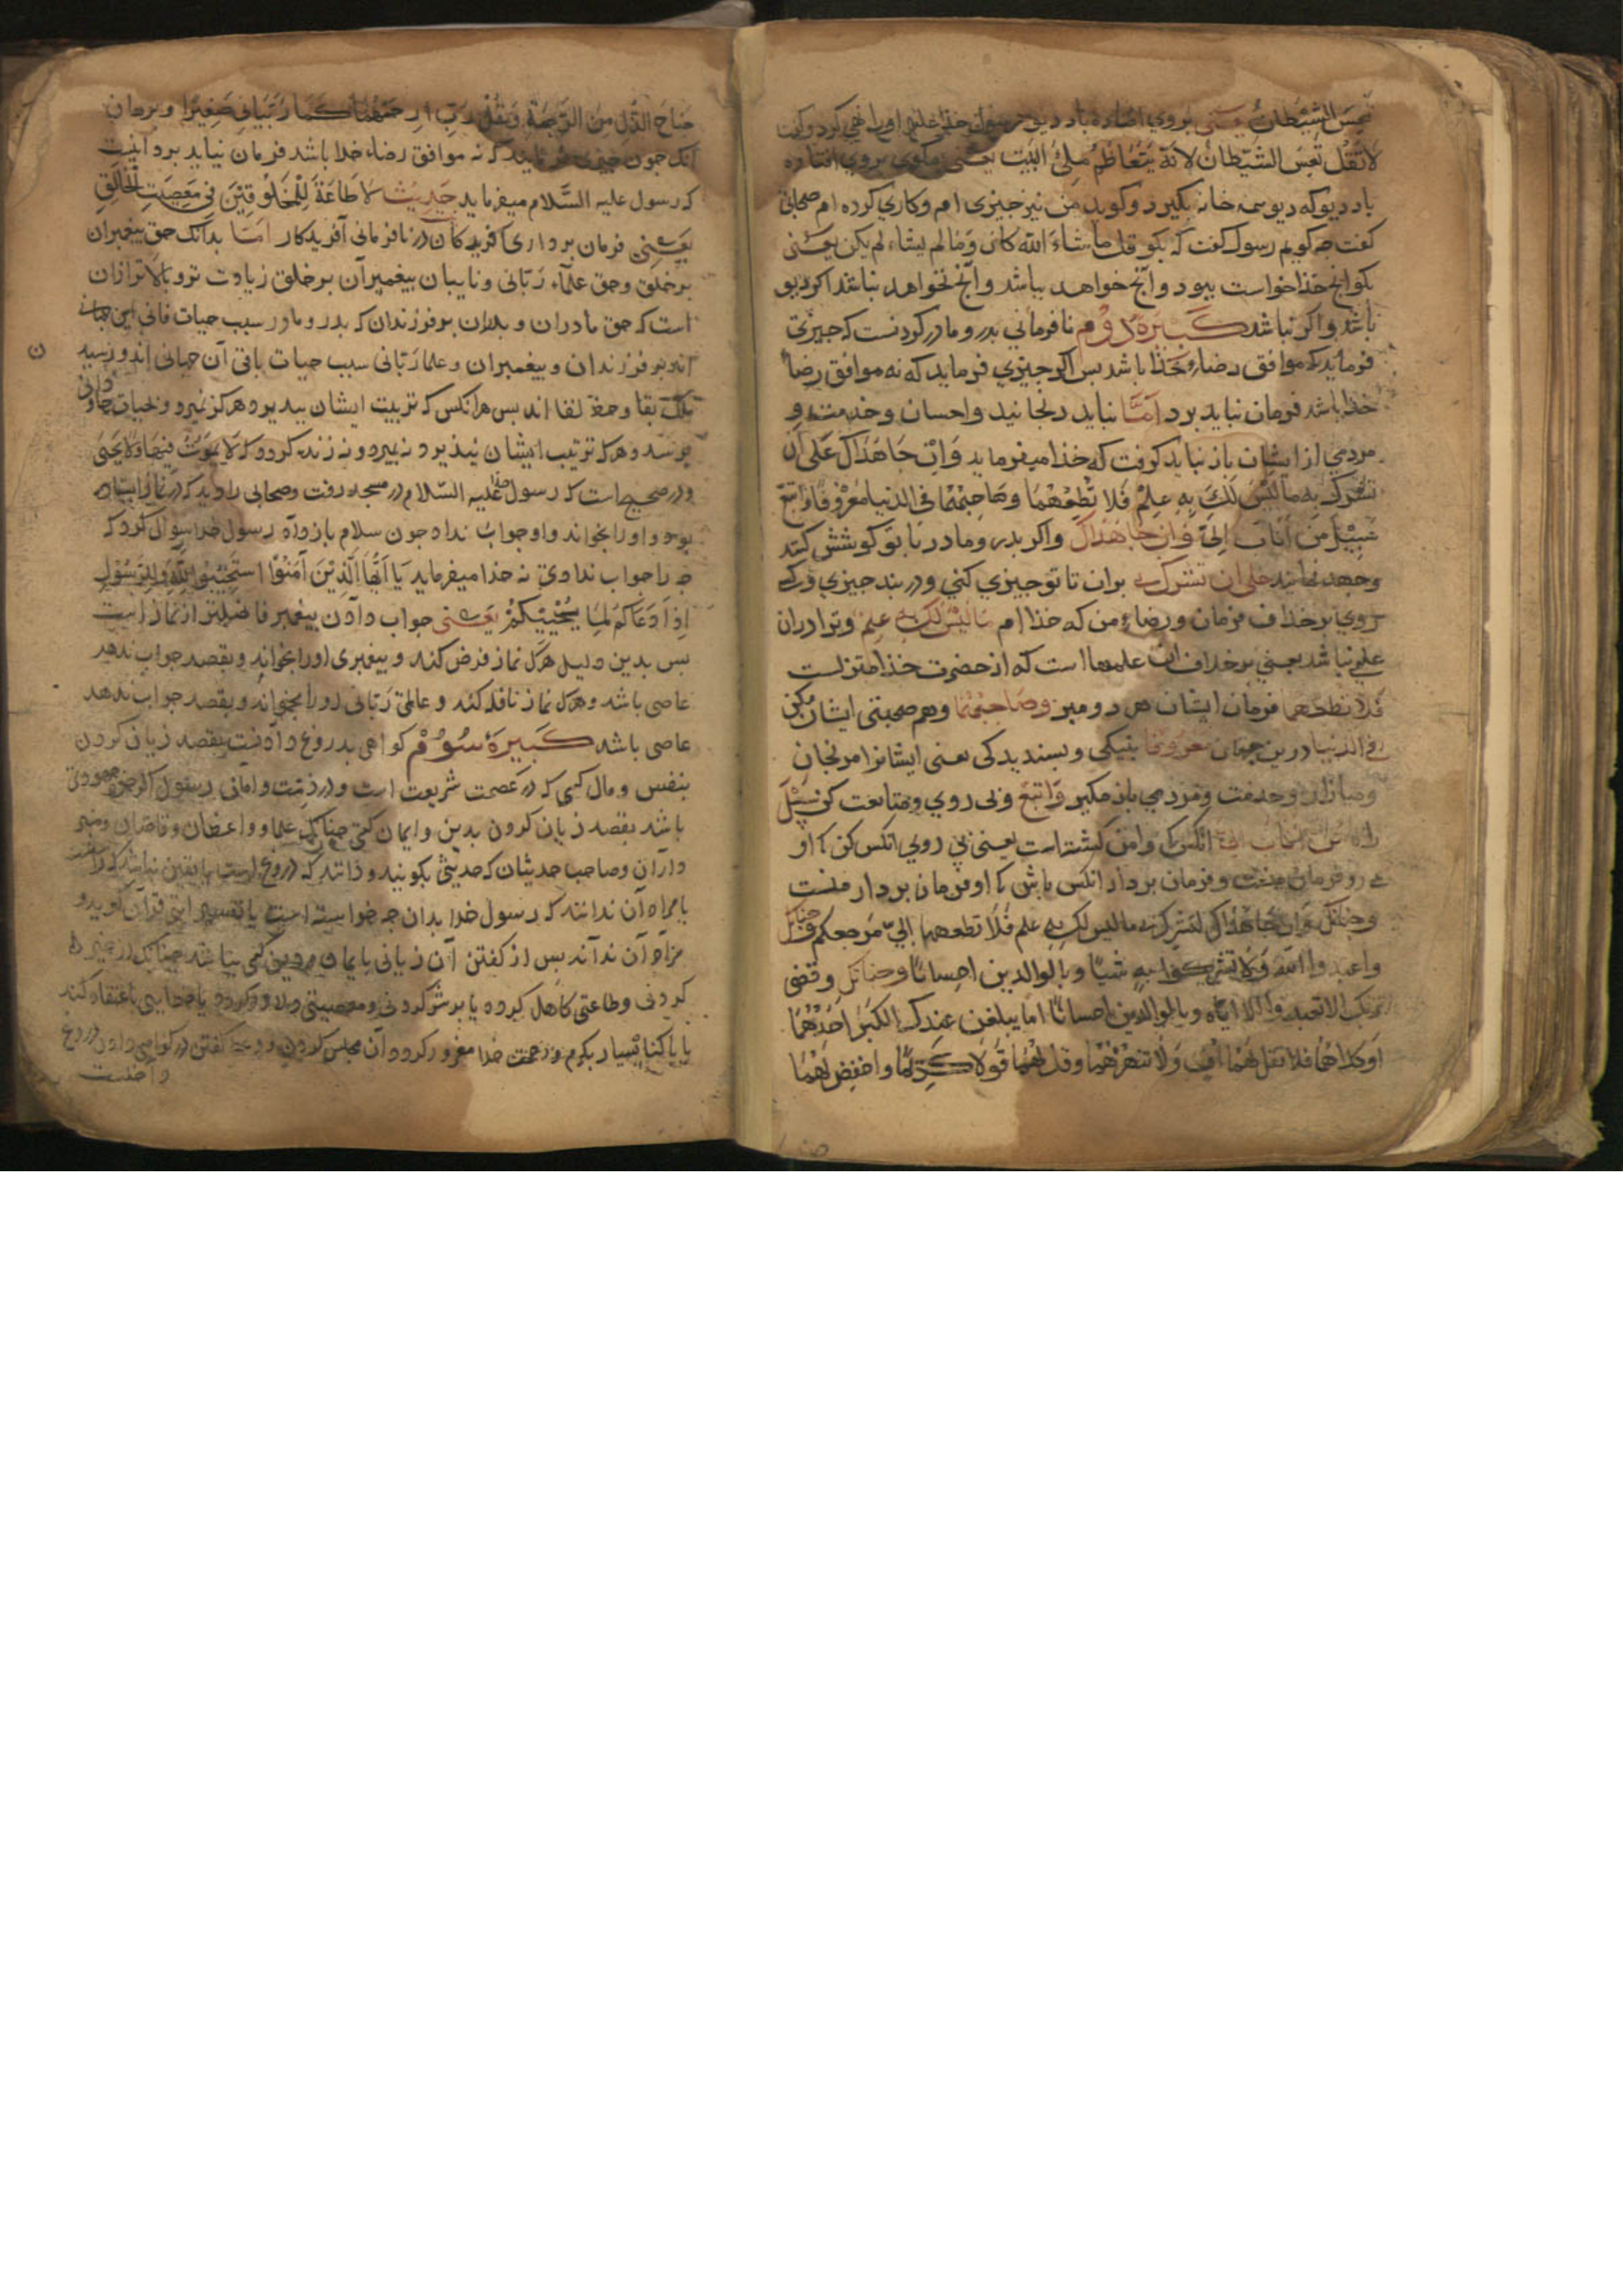 تعس الشیطان یعنی بروی افتاده باد دیو رسول خدا علیه او را نهی کرد و گفت
لا تقل تعس الشیطان لانه یتعاظم ملئ البیت یعنی مگوی بروی افتاده
باد دیو که دیو همه خانه بگیرد و گوید من نیز چیزی ام و کاری کرده ام صحابی
کفت چه کویم رسول کفت که بکو قل ما شاء الله کان و ما لم یشاء لم یکن یعنی
بکو انچ خذا خواست ببود و آنچ خواهد بباشد و آنچ نخواهد نباشد اکر دیو
باشد و اکر نباشد کبیرهٔ دوم نافرمانی بدر و مادر کردنست که چیزی
فرماید که موافق رضاء خذا باشد بس اکر جیزی فرماید که نه موافق رضا
خذا باشد فرمان نباید برد امّا نباید رنجانید و احسان و خدمت و
مردمی از ایشان باز نباید کرفت که خذا میفرماید وَاِنْ جَاهَدَاکَ عَلَی اَن
تشرک به مالیس لَکَ بِهِ عِلمٌ فَلا تُطِعْهُمَا وصَاحِبْهُمَا فی الدنیا معْرُوفًا وَاتبع
سَبِیْلَ مَن اَنَابَ اِلَیَّ وَان جاهداک واکر بدر و مادر با تو کوشش کنند
و جهد نمایند علی ان تشرک بی بران تا تو جیزی کنی و در بند جیزی
روی بر خلاف فرمان و رضاء من که خذا ام مالیس لک به علم و ترا در ان
علمی نباشد یعنی بر خلاف ان علمها است که از حضرت خذا منزلست
فلا تطعهما فرمان ایشان مبر وصاحبهما و هم صحبتی ایشان کن
فی الدنیا درین جهان معروفا بنیکی و بسندیدکی یعنی ایشانرا مرنجان
و خدمت و مردمی باز مکیر وَاتبع و بی روی و متابعت کن سَبِیْلَ
راه من اناب الی انکس که وامن کشته است یعنی بی روی انکس کن که او
و فرمان بردار انکس باش که او فرمان بردار منست
و جنانک وَان جاهداک لتشرک بی مالیس لک به علم فلا تطعهما الیّ مرجعکم و جنانک
واعبدوا الله ولا تشرکوا به شیئا وبالوالدین احسانا و جنانک وقضی
ربک الا تعبدوا الا ایاه وبالوالدین احسانا اما یبلغن عندک الکبر احدهما
اوکلاهما فلا تقل لهما اف ولا تنهرهما وقل لهما قولا کریما واخفض لهما
جناح الذل من الرحمة وقل رب ارحمهما کما ربیانی صغیرا و برهان
آنک جون جیزی فرمایند که نه موافق رضاء خدا باشد فرمان نباید برد اینست
که رسول علیه السّلام میفرماید حدیث لا طَاعَةَ لِلْمَخلُوقِیْن فی معصیت الخالق
یعنی فرمان برداری آفریدکان در نافرمانی آفریدکار امّا بدانک حق بیغمبران
بر خلق و حق علماء ربّانی و نایبان بیغمبران بر خلق زیادت تر و بالاتر ازان
است که حق مادران و بدران بر فرزندان که بدر و مادر سبب حیات فانی این جهانی
اند بر فرزندان و بیغمبران و علما ربّانی سبب حیات باقی آن جهانی اند و رسید
بملک بقا و لقا اند بس هرانکس که تربیت ایشان ببذیرد هرکز نمیرد و بحیات جاودانی
برسد و هر که تربیت ایشان نبذیرد نه بمیرد و نه زنده کردد که لا یموت فیها ولا یحیی
و در صحیح است که رسول علیه السّلام در مسجد رفت و صحابی را دید که در نماز
بود و او را بخواند و او جواب نداد جون سلام باز داد رسول خدا سوال کرد که
چرا جواب ندادی نه خذا میفرماید یا ایّها الّذین آمنوا استجیبوا لله وللرسول
اذا دعاکم لما یحییکم یعنی جواب دادن بیغمبر فاضلتر از نماز است
بس بدین دلیل هر که نماز فرض کند و بیغمبری او را بخواند و بقصد جواب ندهد
عاصی باشد و هر که نماز نافله کند و عالمی ربّانی او را بخواند و بقصد جواب ندهد
عاصی باشد کبیرهٔ سوُم کواهی بدروغ دادنست بقصد زیان کردن
بنفس و مال کسی که در عصمت شریعت است و در ذمّت و امانی رسول اکرچه جهودی
باشد بقصد زیان کردن بدین و ایمان کسی جنانک علما و واعظان و قاضیان و منبر
داران و صاحب حدیثان که حدیثی بکویند و دانند که دروغ است یا یقین ندانند که راست
یا مراد آن ندانند که رسول خدا بدان جه خواسته است یا تفسیر ایتی قرآن کوید و
مراد آن نداند بس از کفتن آن زیانی بایمان و دین کسی بباشد جنانک در خیر
کردنی و طاعتی کاهل کردد یا بر شر کردنی و معصیتی دلاور کردد یا خطایی باعتقاد کند
یا با کناه بسیار بکرم و رحمت خدا مغرور کردد آن مجلس کردن و کفتن در کواهی دادن دروغ
داخلست